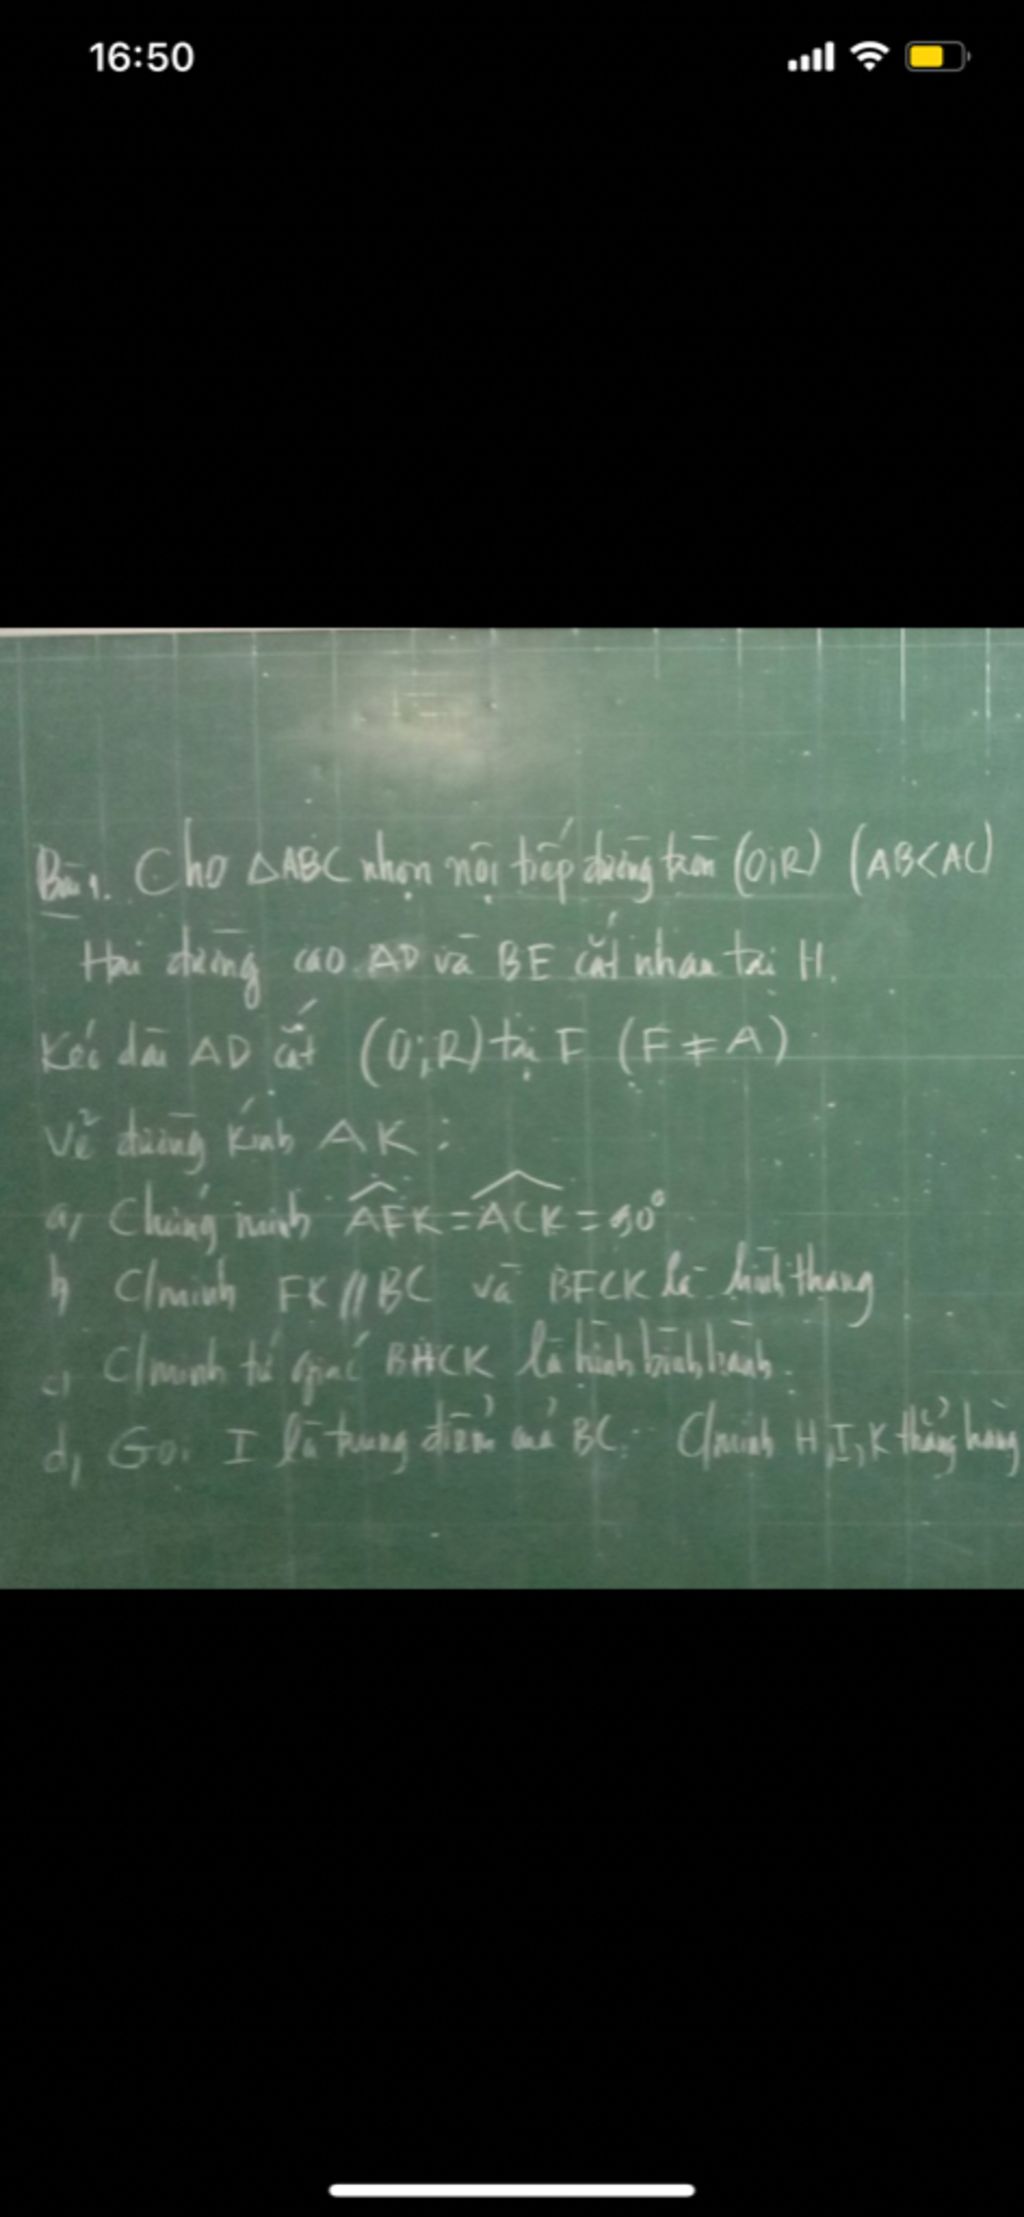 16:50
Bài 1. Cho ΔABC nhọn nội tiếp đường tròn (O;R) (AB<AC)
Hai đường cao AD và BE cắt nhau tại H.
Kéo dài AD cắt (O;R) tại F (F≠A)
Vẽ đường kính AK:
a, Chứng minh AFK = ACK = 90°
b, C/minh FK//BC và BFCK là hình thang
c, C/minh tứ giác BHCK là hình bình hành.
d, Gọi I là trung điểm của BC. C/minh H,I,K thẳng hàng